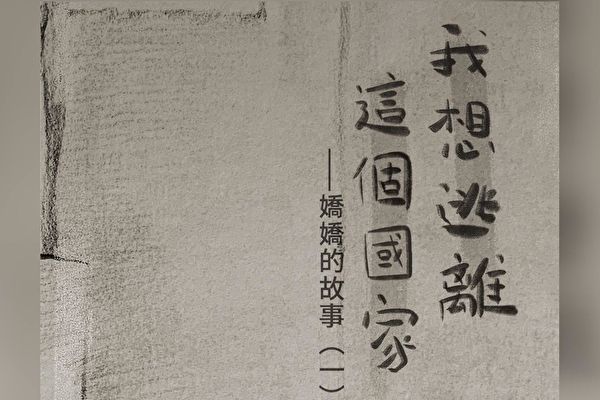 我想逃離
這個國家
—嬌嬌的故事（一）